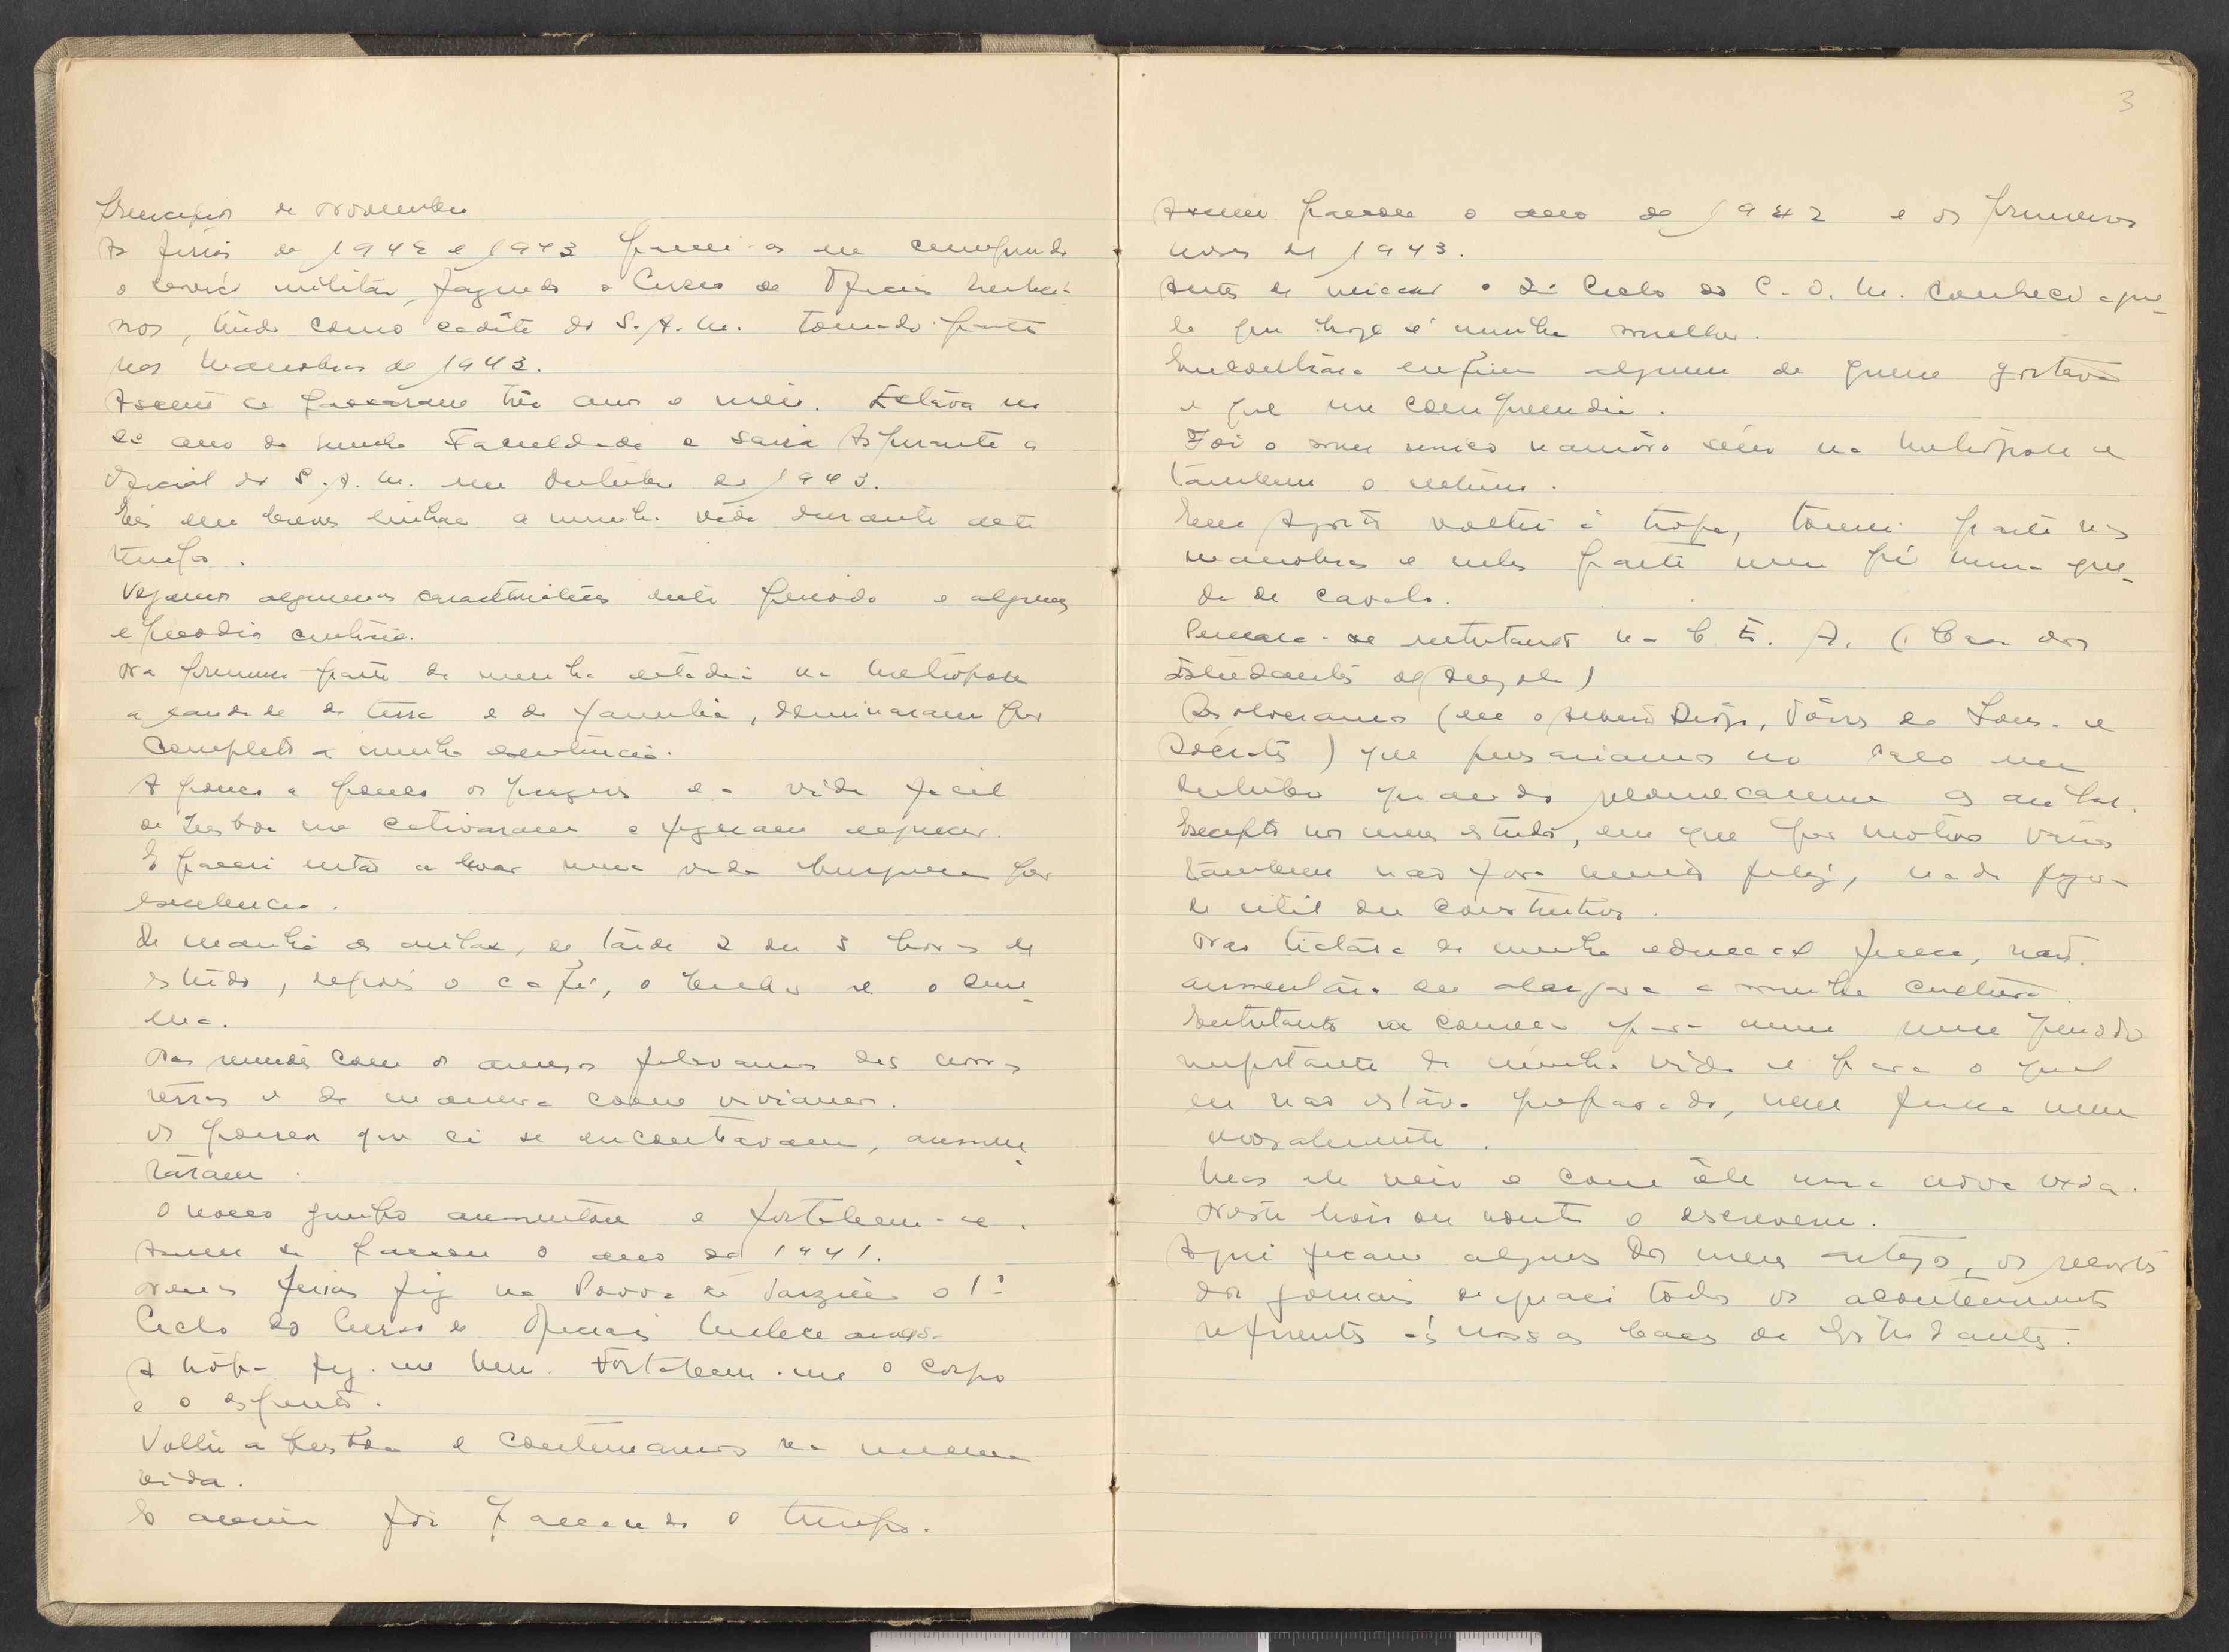 Princípios de Novembro
As férias de 1942 e 1943 passei-as em cumprindo
o serviço militar, fazendo o Curso de Oficiais Milicia-
nos, tendo como cadete do S.A.M. tomado parte
nas Manobras de 1943.
Assim se passaram três anos e meio. Estava no
2º ano da minha Faculdade e saía Aspirante a
Oficial do S.A.M. em Outubro de 1943.
Eis em breves linhas a minha vida durante este
tempo.
Vejamos algumas características deste período e alguns
episódios
Na primeira parte da minha estadia na Metrópole
a saudade da terra e da família, dominaram por
completo a minha existência.
A pouco e pouco os prazeres e a vida facil
de Lisboa me cativaram e fizeram esquecer.
E passei então a levar uma vida burguesa por
excelencia.
De manhã as aulas, de tarde 2 ou 3 horas de
estudo, depois o café, o bilhar e o cine-
ma.
Nas reuniões com os amigos falavamos das nossas
terras e da maneira como viviamos.
Os poucos que cá se encontravam, aumen-
táram.
O nosso grupo aumentou e fortaleceu-se.
Assim se passou o ano de 1941.
Nessas férias fiz na Povoa de Varzim o 1º
Ciclo do Curso de Oficiais Milicianos.
A tropa fez-me bem. Fortaleceu-me o corpo
e o espírito.
Voltei a Lisboa e continuamos na mesma
vida.
E assim foi passando o tempo.
3
Assim passou o ano de 1942 e os primeiros
meses de 1943.
Antes de iniciar o 2º Ciclo do C.O.M. conheci aque-
la que hoje é minha mulher.
Encontrára enfim alguem de quem gostava
e que me compreendia.
Foi o meu unico namôro sério na Metrópole e
tambem o ultimo.
Em Agosto voltei á tropa, tomei parte nas
manobras e nelas parti um pé numa que-
da de cavalo.
Pensara-se entretanto na C.E.A. (Casa dos
Estudantes de Angola)
Resolveramos (eu o Alberto Diogo, Tôrres de Sousa e
Sócrates) que pensariamos no caso em
Outubro quando recomeçassem as aulas.
Excepto nos meus estudos, em que por motivos varios
tambem não fora muito feliz, nada fizera
de util ou construtivo.
Não tratára da minha educação fisica, não
aumentára ou alargara a minha cultura.
Entretanto ia começar para mim um período
importante da minha vida e para o qual
eu não estava preparado, nem fisica nem
moralmente.
Mas ele veio e com êle uma nova vida.
Neste livro ou noutro o escreverei.
Aqui ficam alguns dos meus artigos, os recortes
dos jornais de quasi todos os acontecimentos
referentes ás nossas Casas de Estudantes.